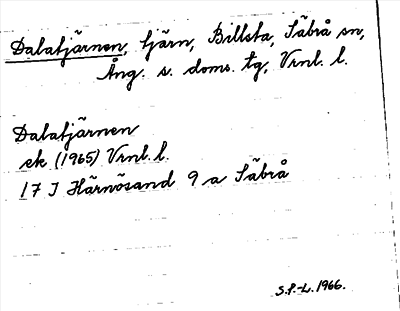 Dalatjärnen, tjärn, Billsta, Säbrå sn,
Ång. s. doms. tg, Vrnl. l.
Dalatjärnen
ek (1965) Vrnl. l.
17 I Härnösand 9 a Säbrå
S.P.-L. 1966.